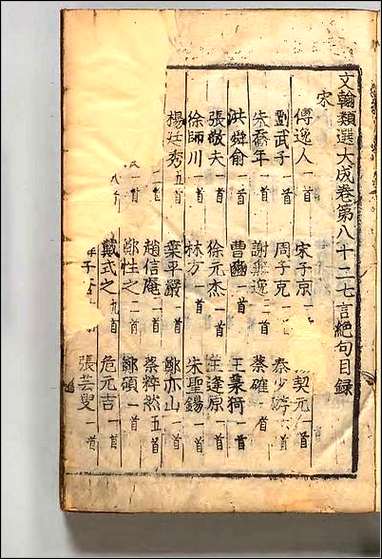 文翰類選大成卷第八十二七言絕句目録
宋
傅逸人一首 宋子京一首 契元一首
劉武子一首 周子克一首 秦少游六首
朱喬年一首 謝無逸二首 蔡確一首
洪舜俞一首 曹豳一首 王景猗一首
張敬夫一首 徐元杰一首 王逢原一首
徐師川一首 林方一首 朱聖錫一首
楊廷秀五首 葉平巖一首 鄭亦山一首
一首 趙信庵一首 蔡粹然五首
一首 鄭性之二首 鄭碩一首
戴式之九首 危元吉一首
張芸叟一首